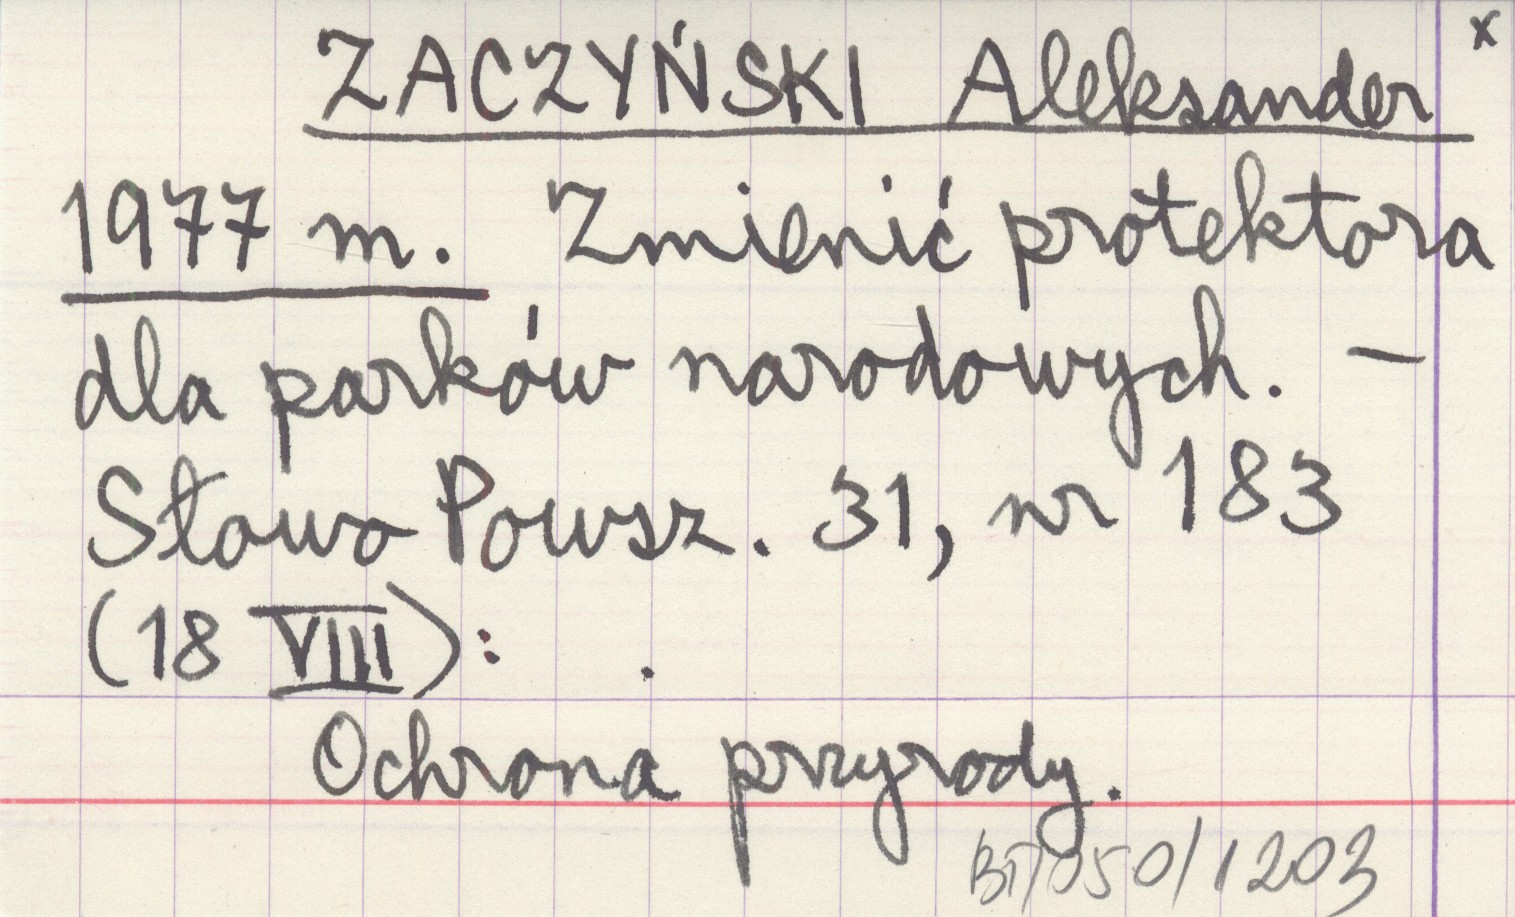 x
ZACZYŃSKI Aleksander
1977 m. Zmienić protektora
dla parków narodowych. —
Słowo Powsz. 31, nr 183
(18 VIII): .
Ochrona przyrody.
BT/050/1203